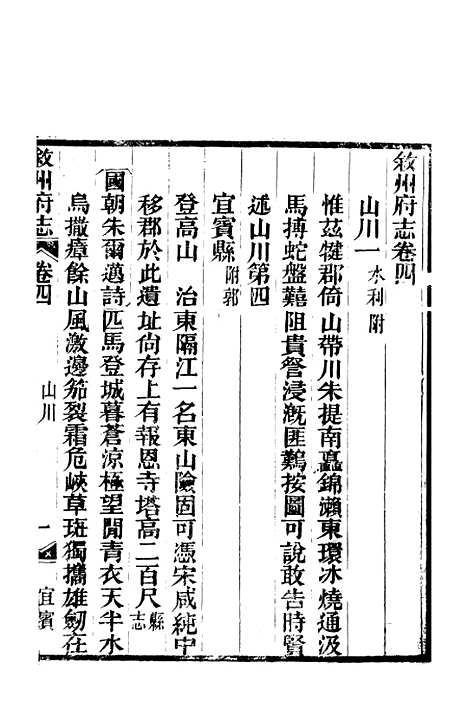 敘州府志卷四
山川一 水利附
惟茲犍郡倚山帶川朱提南矗錦瀨東環冰燒通汲
馬搏蛇盤難阻貴謍浸漑匪鷄按圖可說敢告時賢
述山川第四
宜賓縣 附郭
登高山 治東隔江一名東山險固可憑宋咸純中
移郡於此遺址尙存上有報恩寺塔高二百尺 縣志
國朝朱爾邁詩匹馬登城暮蒼涼極望閒靑衣天半水
烏撒瘴餘山風激邊笳裂霜危峽草斑獨攜雄劒在
敘州府志 卷四 山川 一 宜賓